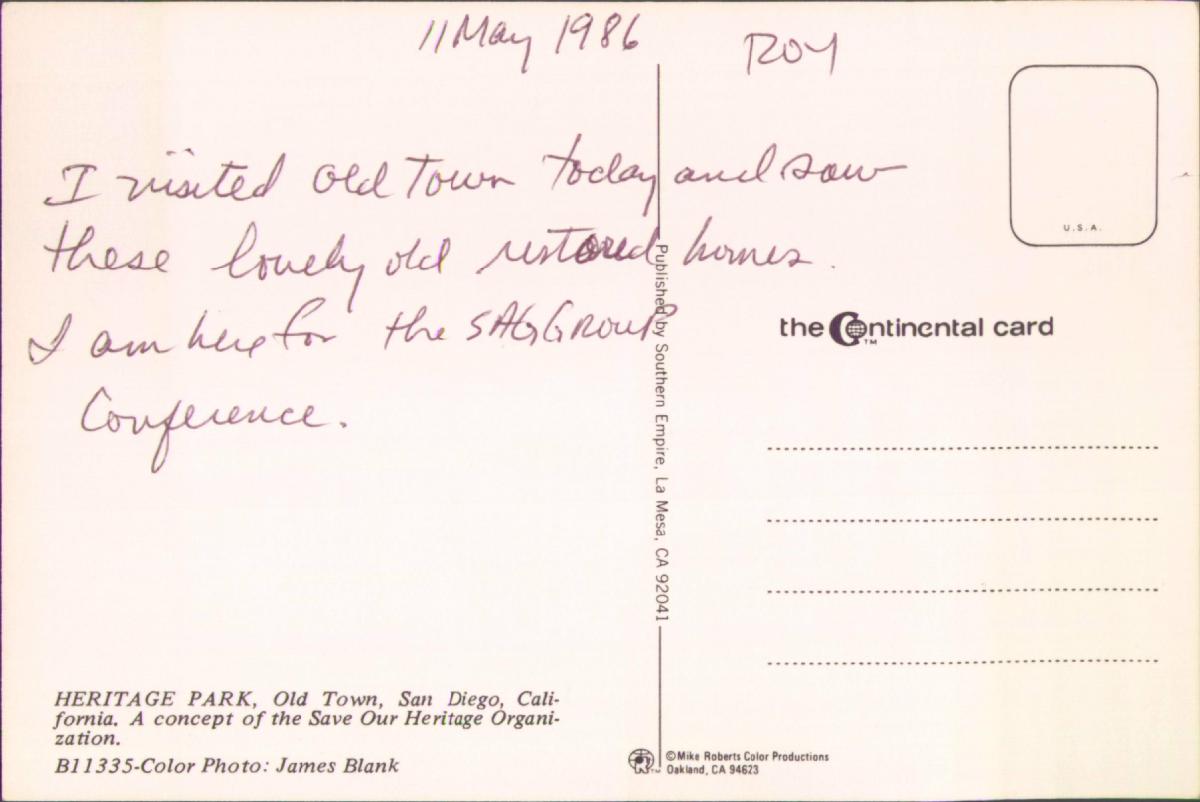 11 May 1986
ROY
I visited Old Town today and saw
these lovely old restored homes.
I am here for the SAG GROUP
Conference.
U.S.A.
the Continental card
TM
Published by Southern Empire, La Mesa, CA 92041
HERITAGE PARK, Old Town, San Diego, Cali-
fornia. A concept of the Save Our Heritage Organi-
zation.
B11335-Color Photo: James Blank
©Mike Roberts Color Productions
Oakland, CA 94623